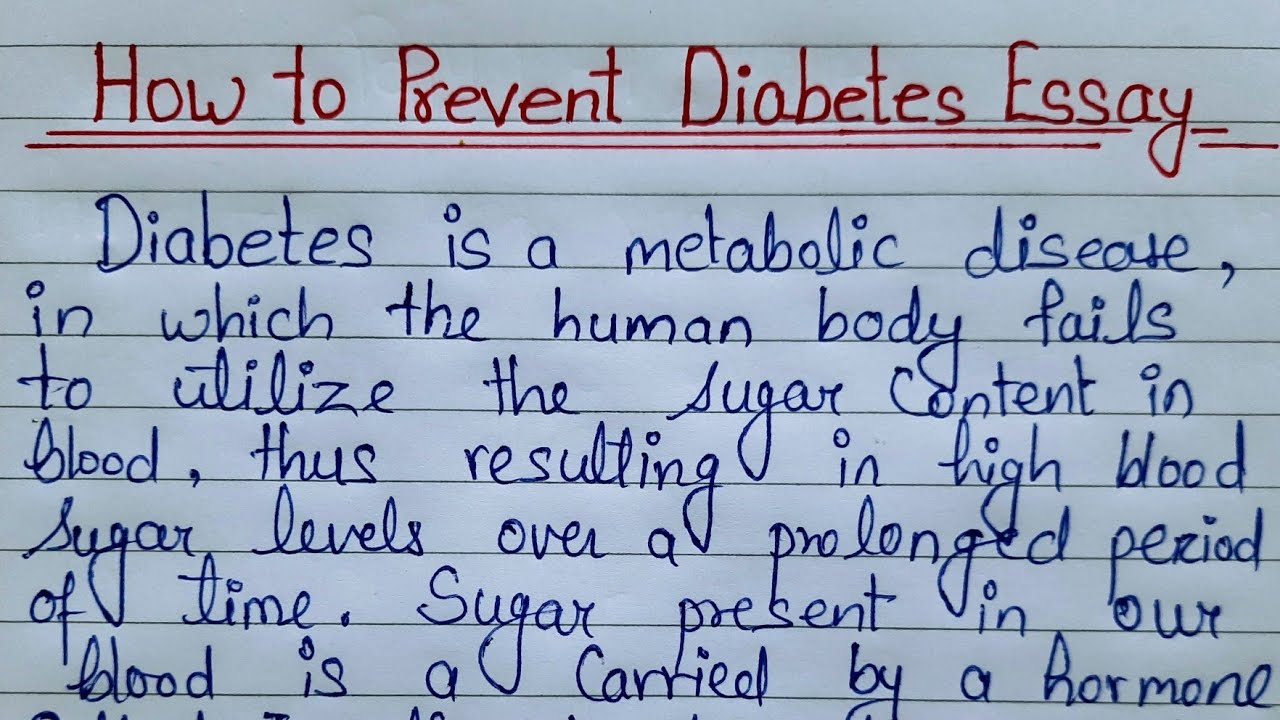 How to Prevent Diabetes Essay
Diabetes is a metabolic disease,
in which the human body fails
to utilize the sugar content in
blood, thus resulting in high blood
sugar levels over a prolonged period
of time. Sugar present in our
blood is a carried by a hormone